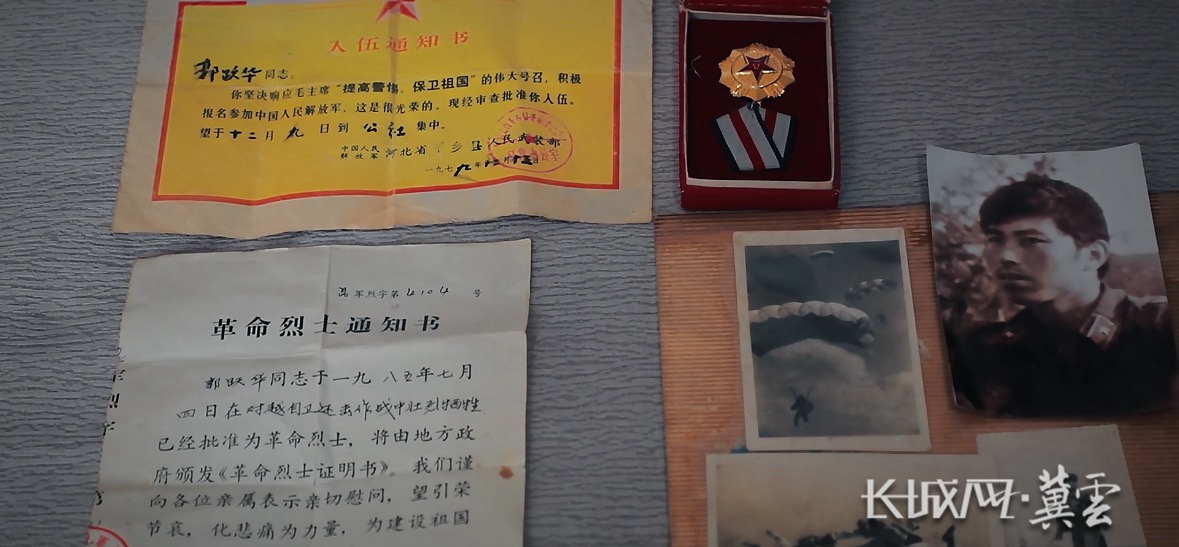 入伍通知书
郭跃华同志：
你坚决响应毛主席“提高警惕，保卫祖国”的伟大号召，积极
报名参加中国人民解放军，这是很光荣的。现经审查批准你入伍。
望于十二月九日到公社集中。
中国人民
解放军
河北省 乡县人民武装部
一九七九年
军烈字第4104号
革命烈士通知书
郭跃华同志于一九八五年七月
四日在对越自卫还击作战中壮烈牺牲
已经批准为革命烈士，将由地方政
府颁发《革命烈士证明书》。我们谨
向各位亲属表示亲切慰问，望引荣
节哀，化悲痛为力量，为建设祖国
军烈字
长城网·冀云